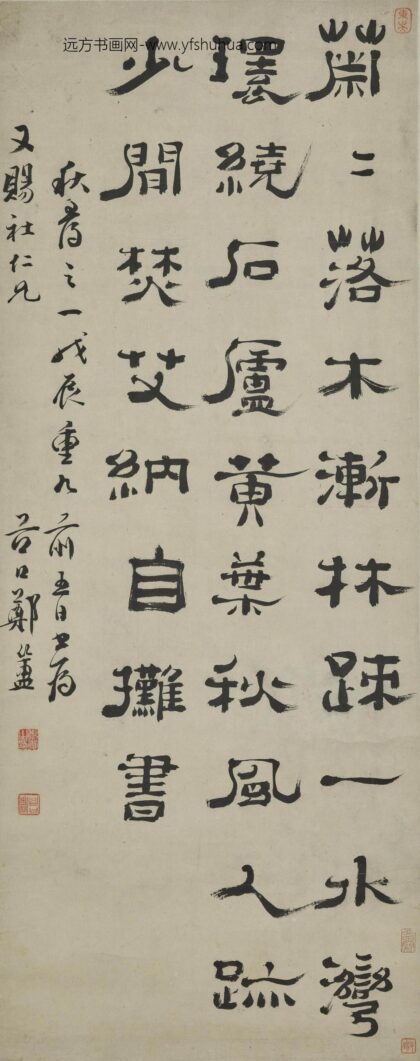 远方书画网-www.yfshuhua.com
蕭〻落木漸林踈一水灣
環繞石廬黃葉秋風人跡
少閒焚艾納自攤書
秋之一戊辰重九前五日書為
又賜社仁兄 谷口鄭簠